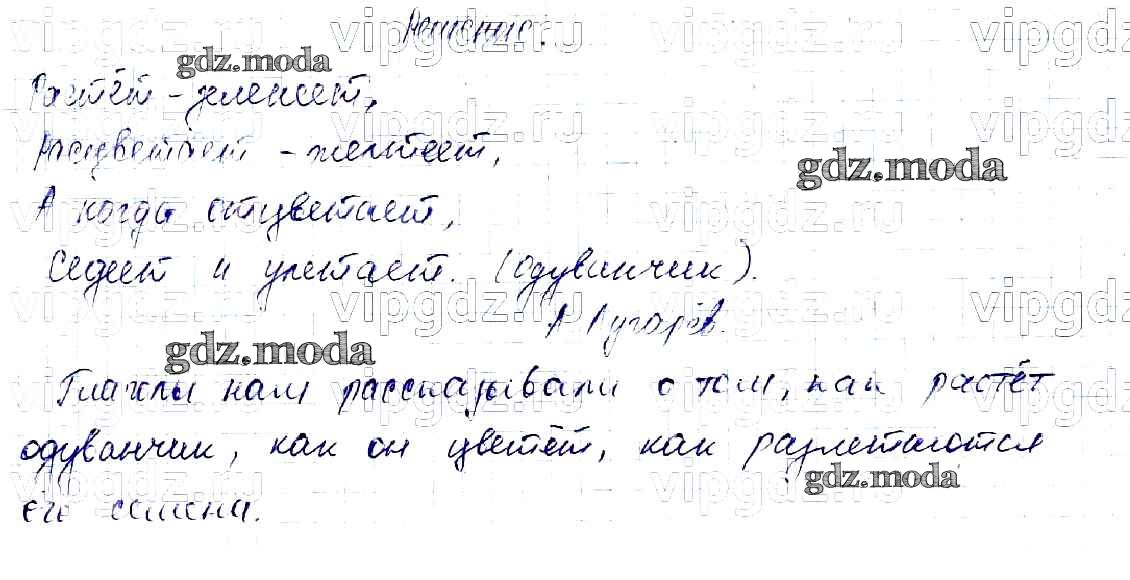 Решение.
Растёт - зеленеет,
Расцветает - желтеет,
А когда отцветает,
Седеет и улетает. (одуванчик).
А Лугарёв.
Глаголы нам рассказывали о том, как растёт
одуванчик, как он цветёт, как разлетаются
его семена.
gdz.moda
gdz.moda
gdz.moda
gdz.moda
vipgdz.ru